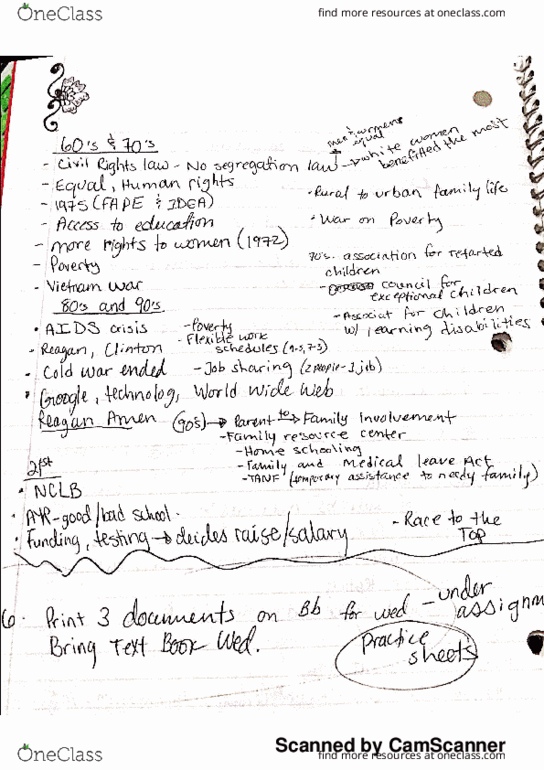 OneClass
find more resources at oneclass.com
60's & 70's
- Civil Rights law - No segregation law → white women benefitted the most
men & womens equal
- Equal, Human rights
- 1975 (FAPE & IDEA)
- Access to education
- more rights to women (1972)
- Poverty
- Vietnam war
- Rural to urban family life
- War on Poverty
70's. association for retarted
children
- council for
exceptional children
- Associat for children
w/ learning disabilities
80's and 90's
• AIDS crisis
- Reagan, Clinton
• Cold war ended
• Google, technolog, World Wide Web
- Poverty
- Flexible work
schedules (9-5, 7-3)
- Job sharing (2 people - 1 job)
Reagan Amen (90's) → Parent to → Family Involvement
- Family resource center
- Home schooling
- Family and Medical leave Act
- TANF (temporary assistance to needy family)
21st
• NCLB
• AYP - good/bad school.
• Funding, testing → decides raise/salary
- Race to the
TOP
6. Print 3 documents on Bb for wed - under
assignm
Bring Text Book Wed.
Practice
sheets
Scanned by CamScanner
OneClass
find more resources at oneclass.com